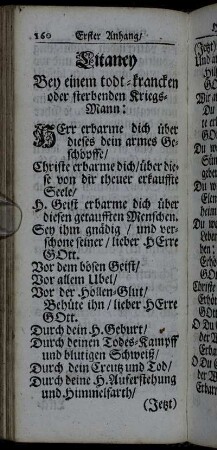 160 Erster Anhang/
Litaney
Bey einem todt-krancken
oder sterbenden Kriegs-
Mann:
HErr erbarme dich über
dieses dein armes Ge-
schöpffe/
Christe erbarme dich/über die-
se von dir theuer erkauffte
Seele/
H. Geist erbarme dich über
diesen getaufften Menschen.
Sey ihm gnädig / und ver-
schone seiner / lieber HErre
GOtt.
Vor dem bösen Geist/
Vor allem Ubel/
Vor der Höllen-Glut/
Behüte ihn / lieber HErre
GOtt.
Durch dein H. Geburt/
Durch deinen Todes-Kampff
und blutigen Schweiß/
Durch dein Creutz und Tod/
Durch deine H. Auferstehung
und Himmelfarth/
(Jetzt)